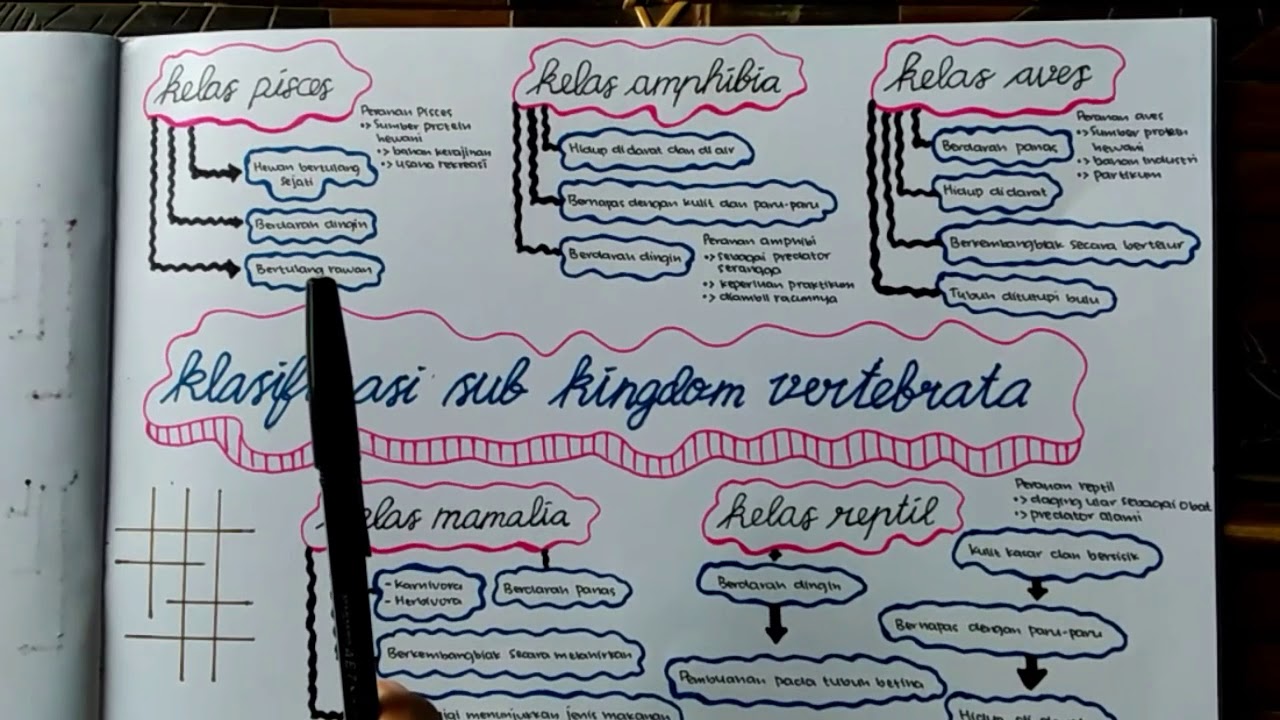 kelas pisces
Peranan Pisces
•> Sumber protein
hewani
•> bahan kerajinan
•> usana rekreasi
Hewan bertulang
sejati
Berdarah dingin
Bertulang rawan
kelas amphibia
Hidup di darat dan di air
Bernapas dengan kulit dan paru-paru
Berdarah dingin
Peranan amphibi
•> sebagai predator
serangga
•> keperluan praktikum
•> diambil racunnya
kelas aves
Peranan aves
•> Sumber protein
hewani
•> bahan industri
•> partikum
Berdarah panas
Hidup di darat
Berkembangbiak secara bertelur
Tubuh ditutupi bulu
sub kingdom vertebrata
mamalia
- Karnivora
- Herbivora
Berdarah panas
Berkembangbiak secara melahirkan
menunjukkan jenis makanan
kelas reptil
Peranan reptil
•> daging ular sebagai obat
•> predator alami
Berdarah dingin
Pembuahan pada tubuh betina
Kulit kasar dan bersisik
Bernapas dengan paru-paru